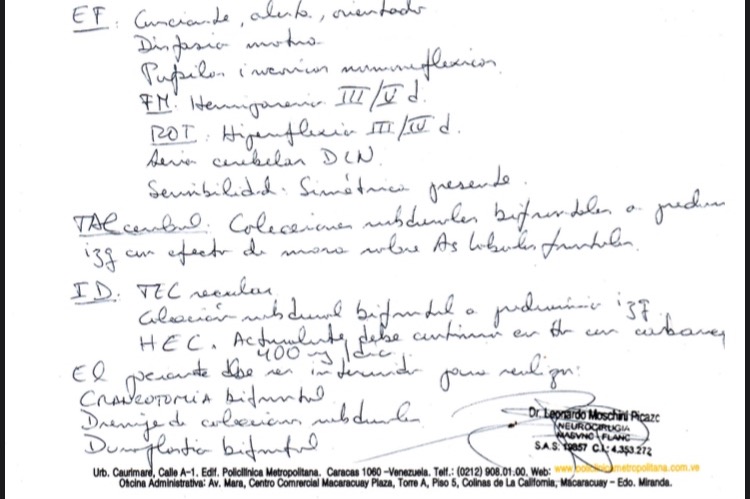 EF: Conciente, alerta, orientado
Disfasia motora
Pupilas isocoricas normoreflexicas.
FM: Hemiparesia III/V d.
ROT: Hiperreflexia III/IV d.
Seria cerebelar DLN.
Sensibilidad: Simétrica presente.
TAC cerebral: Colecciones subdurales bifrontales a predom
izq con efecto de masa sobre As lobulos frontales.
ID: TEC
Colección subdural bifrontal a predominio izq.
HEC. Actualmente debe continuar en tto con
400 mg/dia.
El paciente debe ser intervenido para realizar:
CRANEOTOMIA bifrontal
Drenaje de colecciones subdurales
Duroplastia bifrontal
Dr. Leonardo Moschini Picazo
NEUROCIRUGIA
MASVNC - FLANC
S.A.S. 19857 C.I.: 4.353.272
Urb. Caurimare, Calle A-1. Edif. Policlínica Metropolitana. Caracas 1060 -Venezuela. Telf.: (0212) 908.01.00, Web: www.policlinicametropolitana.com.ve
Oficina Administrativa: Av. Mara, Centro Comercial Macaracuay Plaza, Torre A, Piso 5, Colinas de La California, Macaracuay - Edo. Miranda.